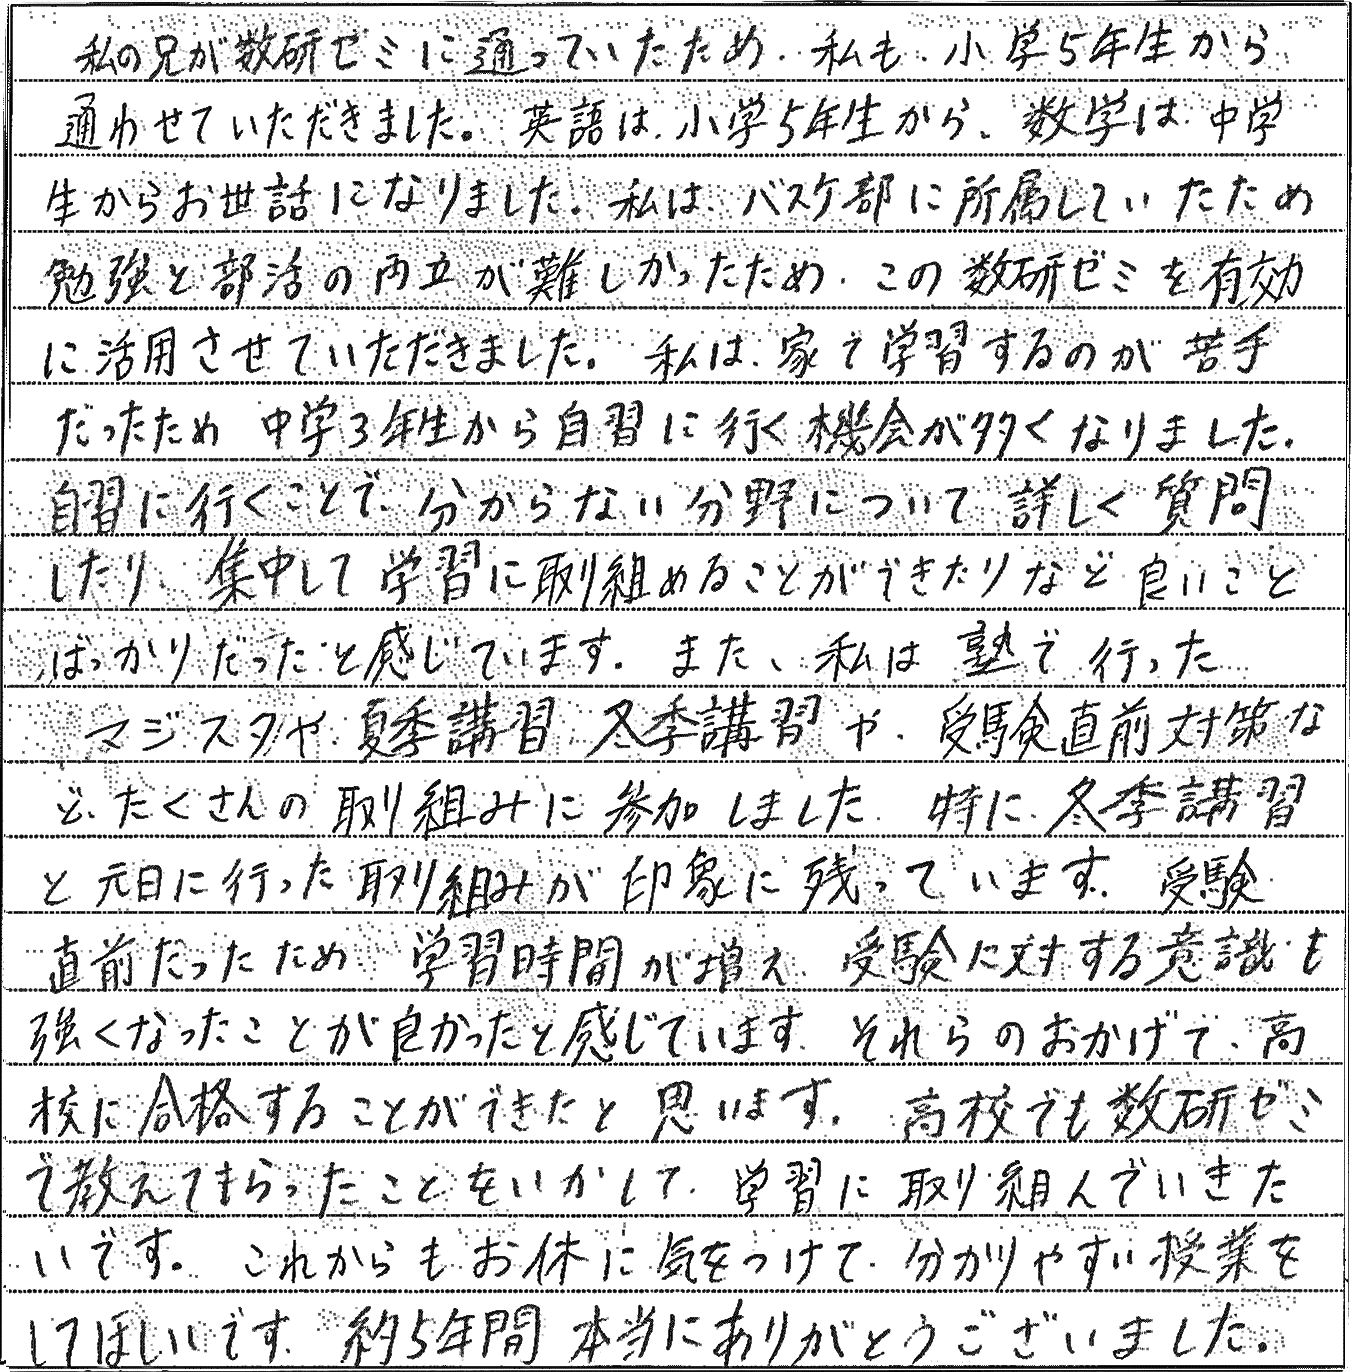 私の兄が数研ゼミに通っていたため、私も、小学5年生から
通わせていただきました。英語は、小学5年生から、数学は、中学
生からお世話になりました。私は、バスケ部に所属していたため
勉強と部活の両立が難しかったため、この数研ゼミを有効
に活用させていただきました。私は、家で学習するのが苦手
だったため中学3年生から自習に行く機会が多くなりました。
自習に行くことで、分からない分野について詳しく質問
したり、集中して学習に取り組めることができたりなど良いこと
ばっかりだったと感じています。また、私は塾で行った
マジスタや、夏季講習、冬季講習や、受験直前対策な
ど、たくさんの取り組みに参加しました。特に、冬季講習
と元日に行った取り組みが印象に残っています。受験
直前だったため、学習時間が増え、受験に対する意識も
強くなったことが良かったと感じています。それらのおかげで、高
校に合格することができたと思います。高校でも数研ゼミ
で教えてもらったことをいかして、学習に取り組んでいきた
いです。これからもお体に気をつけて、分かりやすい授業を
してほしいです。約5年間本当にありがとうございました。